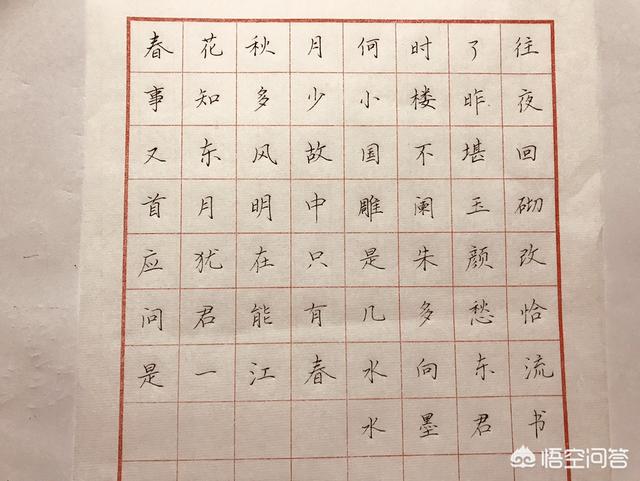 春花秋月何时了往
事知多少小楼昨夜
又东风故国不堪回
首月明中雕阑玉砌
应犹在只是朱颜改
问君能有几多愁恰
是一江春水向东流
水墨君书
悟空问答